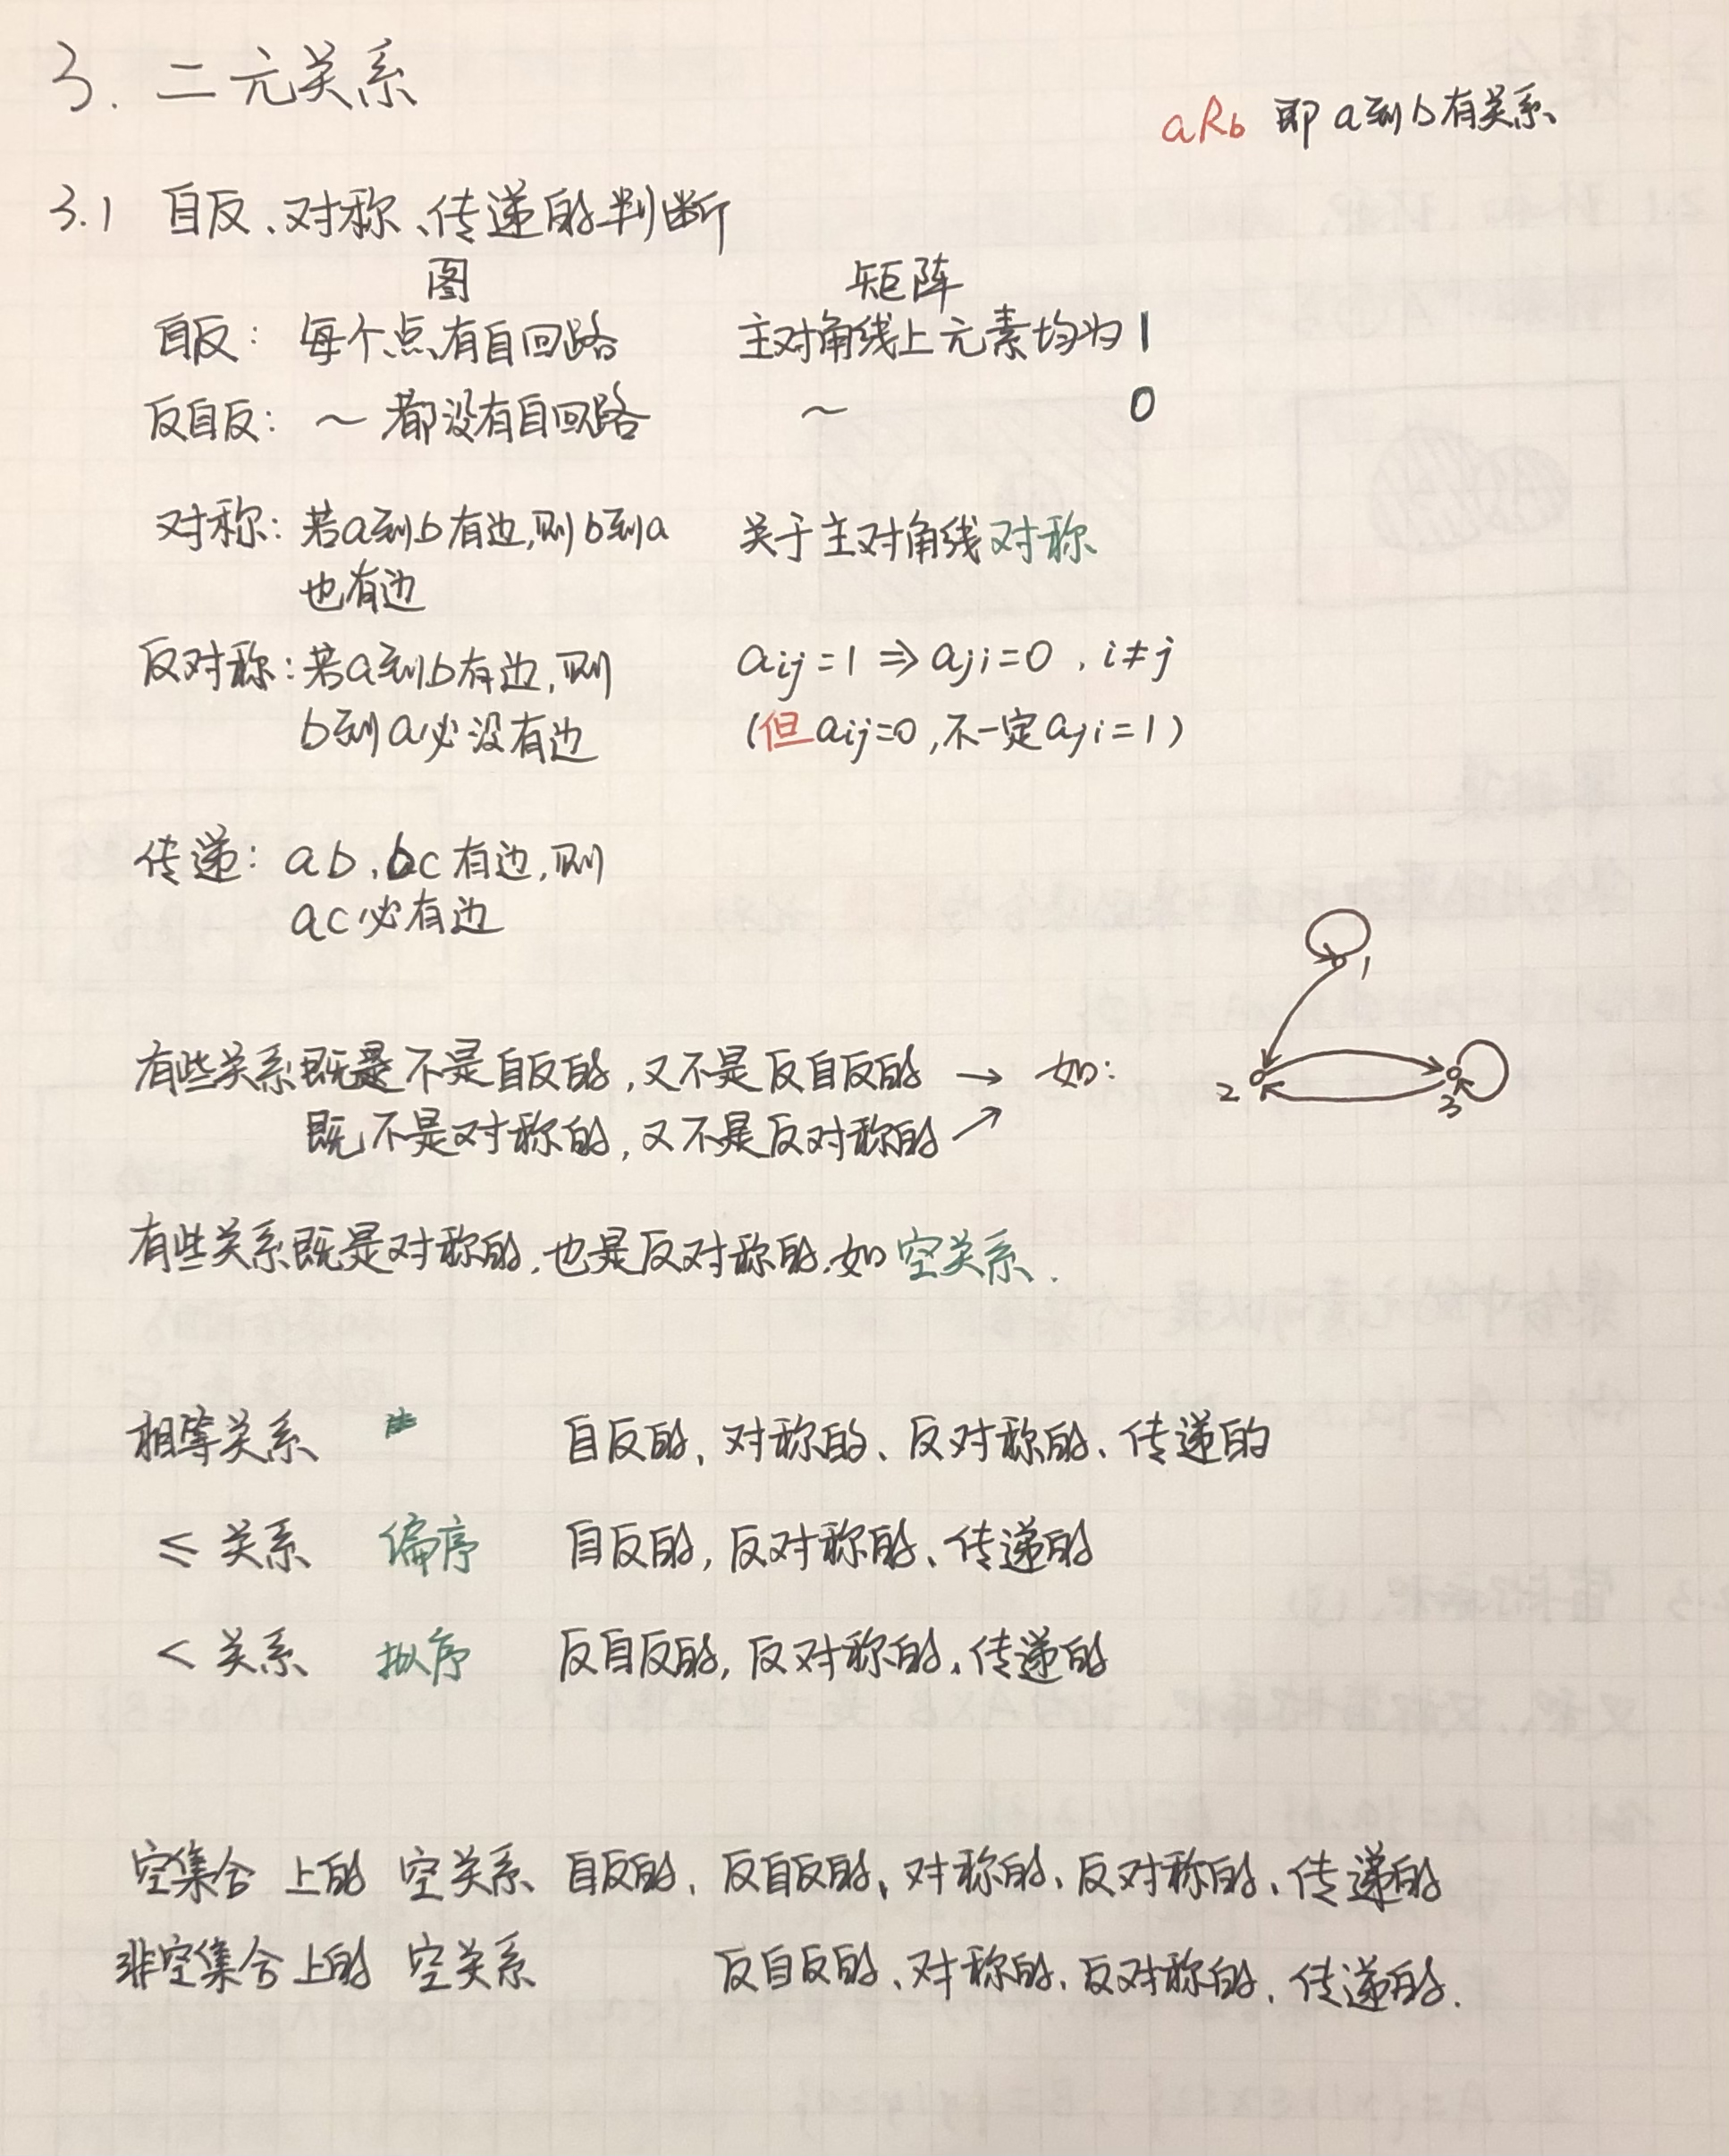 3. 二元关系
aRb 即 a到b有关系
3.1 自反、对称、传递的判断
图 矩阵
自反： 每个点有自回路 主对角线上元素均为 1
反自反： ～ 都没有自回路 ～ 0
对称： 若a到b有边,则b到a 关于主对角线对称
也有边
反对称：若a到b有边,则 aij=1 ⇒ aji=0 , i≠j
b到a必没有边 (但aij=0,不一定aji=1)
传递： ab、bc有边,则
ac必有边
1
有些关系既是不是自反的,又不是反自反的 → 如：
2 3
既不是对称的,又不是反对称的 ↗
有些关系既是对称的,也是反对称的,如 空关系.
相等关系 自反的, 对称的、反对称的、传递的
≤ 关系 偏序 自反的, 反对称的、传递的
< 关系 拟序 反自反的, 反对称的、传递的
空集合 上的 空关系 自反的、反自反的、对称的、反对称的、传递的
非空集合上的 空关系 反自反的、对称的、反对称的、传递的.